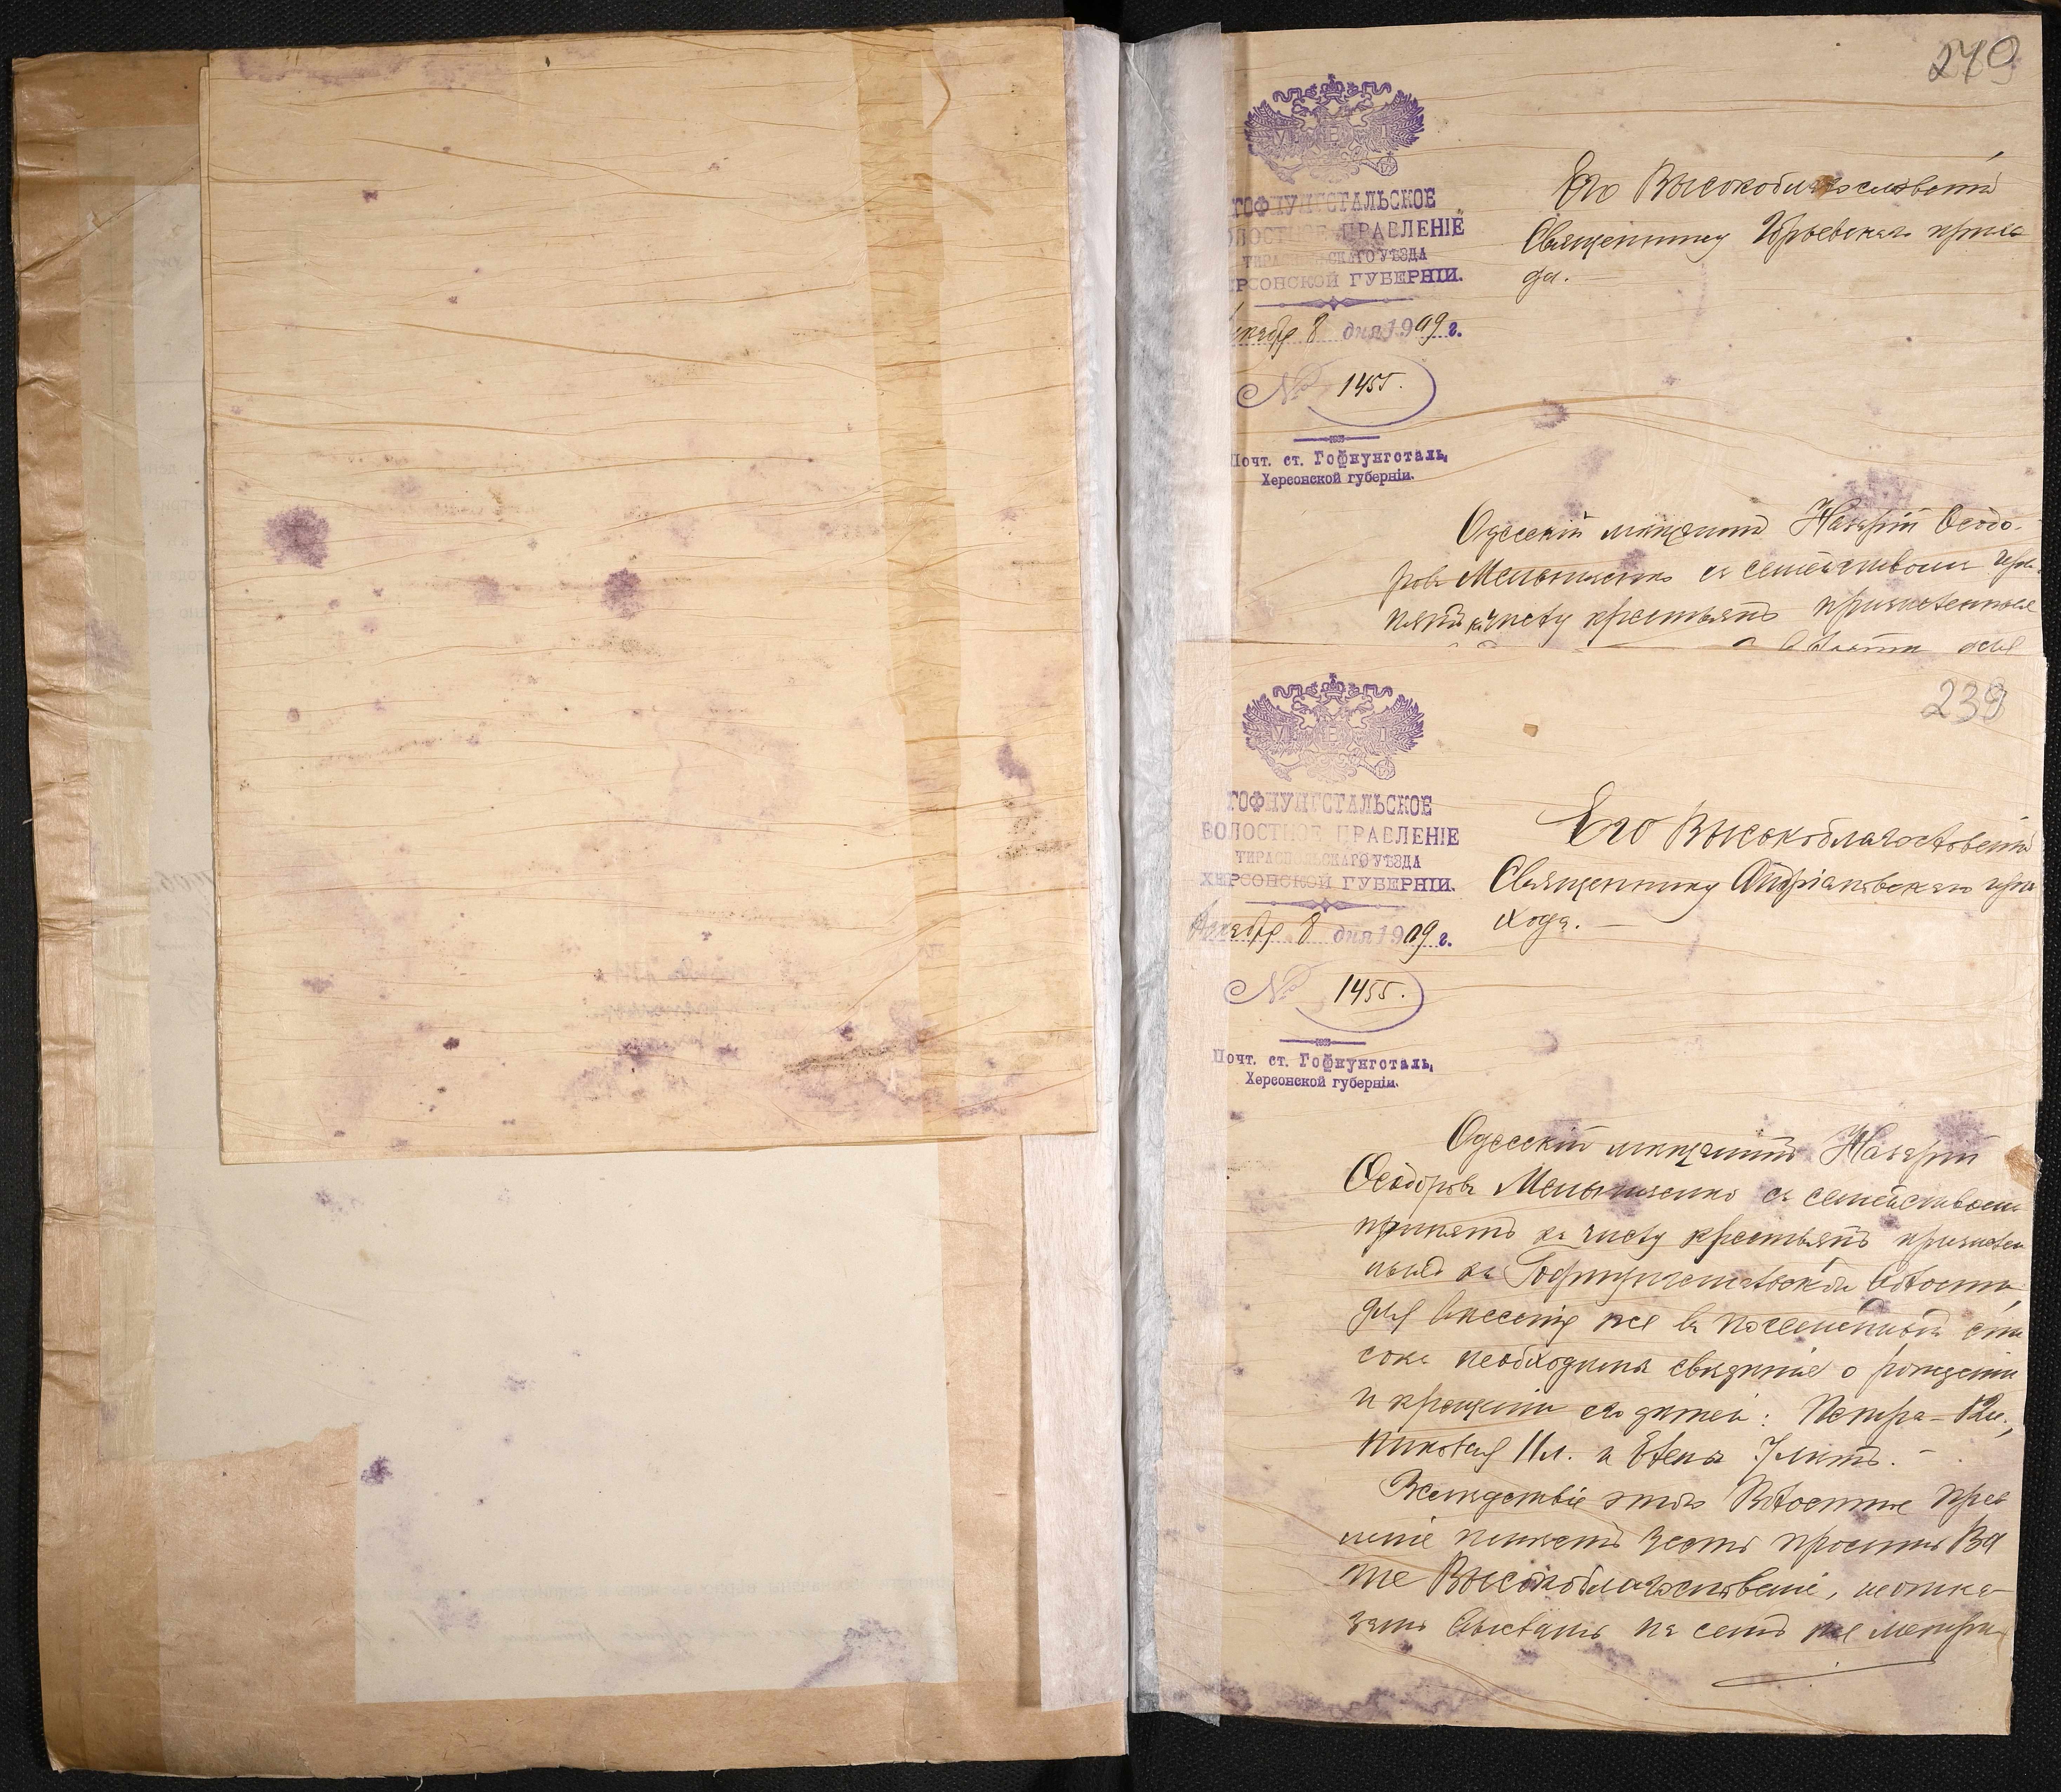 279
ГОФНУНГСТАЛЬСКОЕ
ВОЛОСТНОЕ ПРАВЛЕНІЕ
ТИРАСПОЛЬСКАГО УѢЗДА
ХЕРСОНСКОЙ ГУБЕРНІИ.
8 дня 1909 г.
№ 1455.
Почт. ст. Гофнунгсталь,
Херсонской губерніи.
Его Высокоблагословенію
Священнику прихо
да.
Одесскій мѣщанинъ Назарій Ѳеодо-
ровъ Мельниченко съ семействомъ при
нятъ къ числу крестьянъ причисленныхъ
239
ГОФНУНГСТАЛЬСКОЕ
ВОЛОСТНОЕ ПРАВЛЕНІЕ
ТИРАСПОЛЬСКАГО УѢЗДА
ХЕРСОНСКОЙ ГУБЕРНІИ.
Декабря 8 дня 1909 г.
№ 1455.
Почт. ст. Гофнунгсталь,
Херсонской губерніи.
Его Высокоблагословенію
Священнику Андріановскаго при
хода.
Одесскій мѣщанинъ Назарій
Ѳеодоровъ Мельниченко съ семействомъ
принятъ къ числу крестьянъ причислен
ныхъ къ Гофнунгстальской волости,
для внесенія же въ посемейный спи
сокъ необходимы свѣдѣніе о рожденіи
и крещеніи его дѣтей: Петра - 12л.,
Николая 11л. и Елены 7 лѣтъ.
Вслѣдствіе этого Волостное Прав
леніе имѣетъ честь просить Ва
ше Высокоблагословеніе, не отка-
зать выслать на семъ же метри